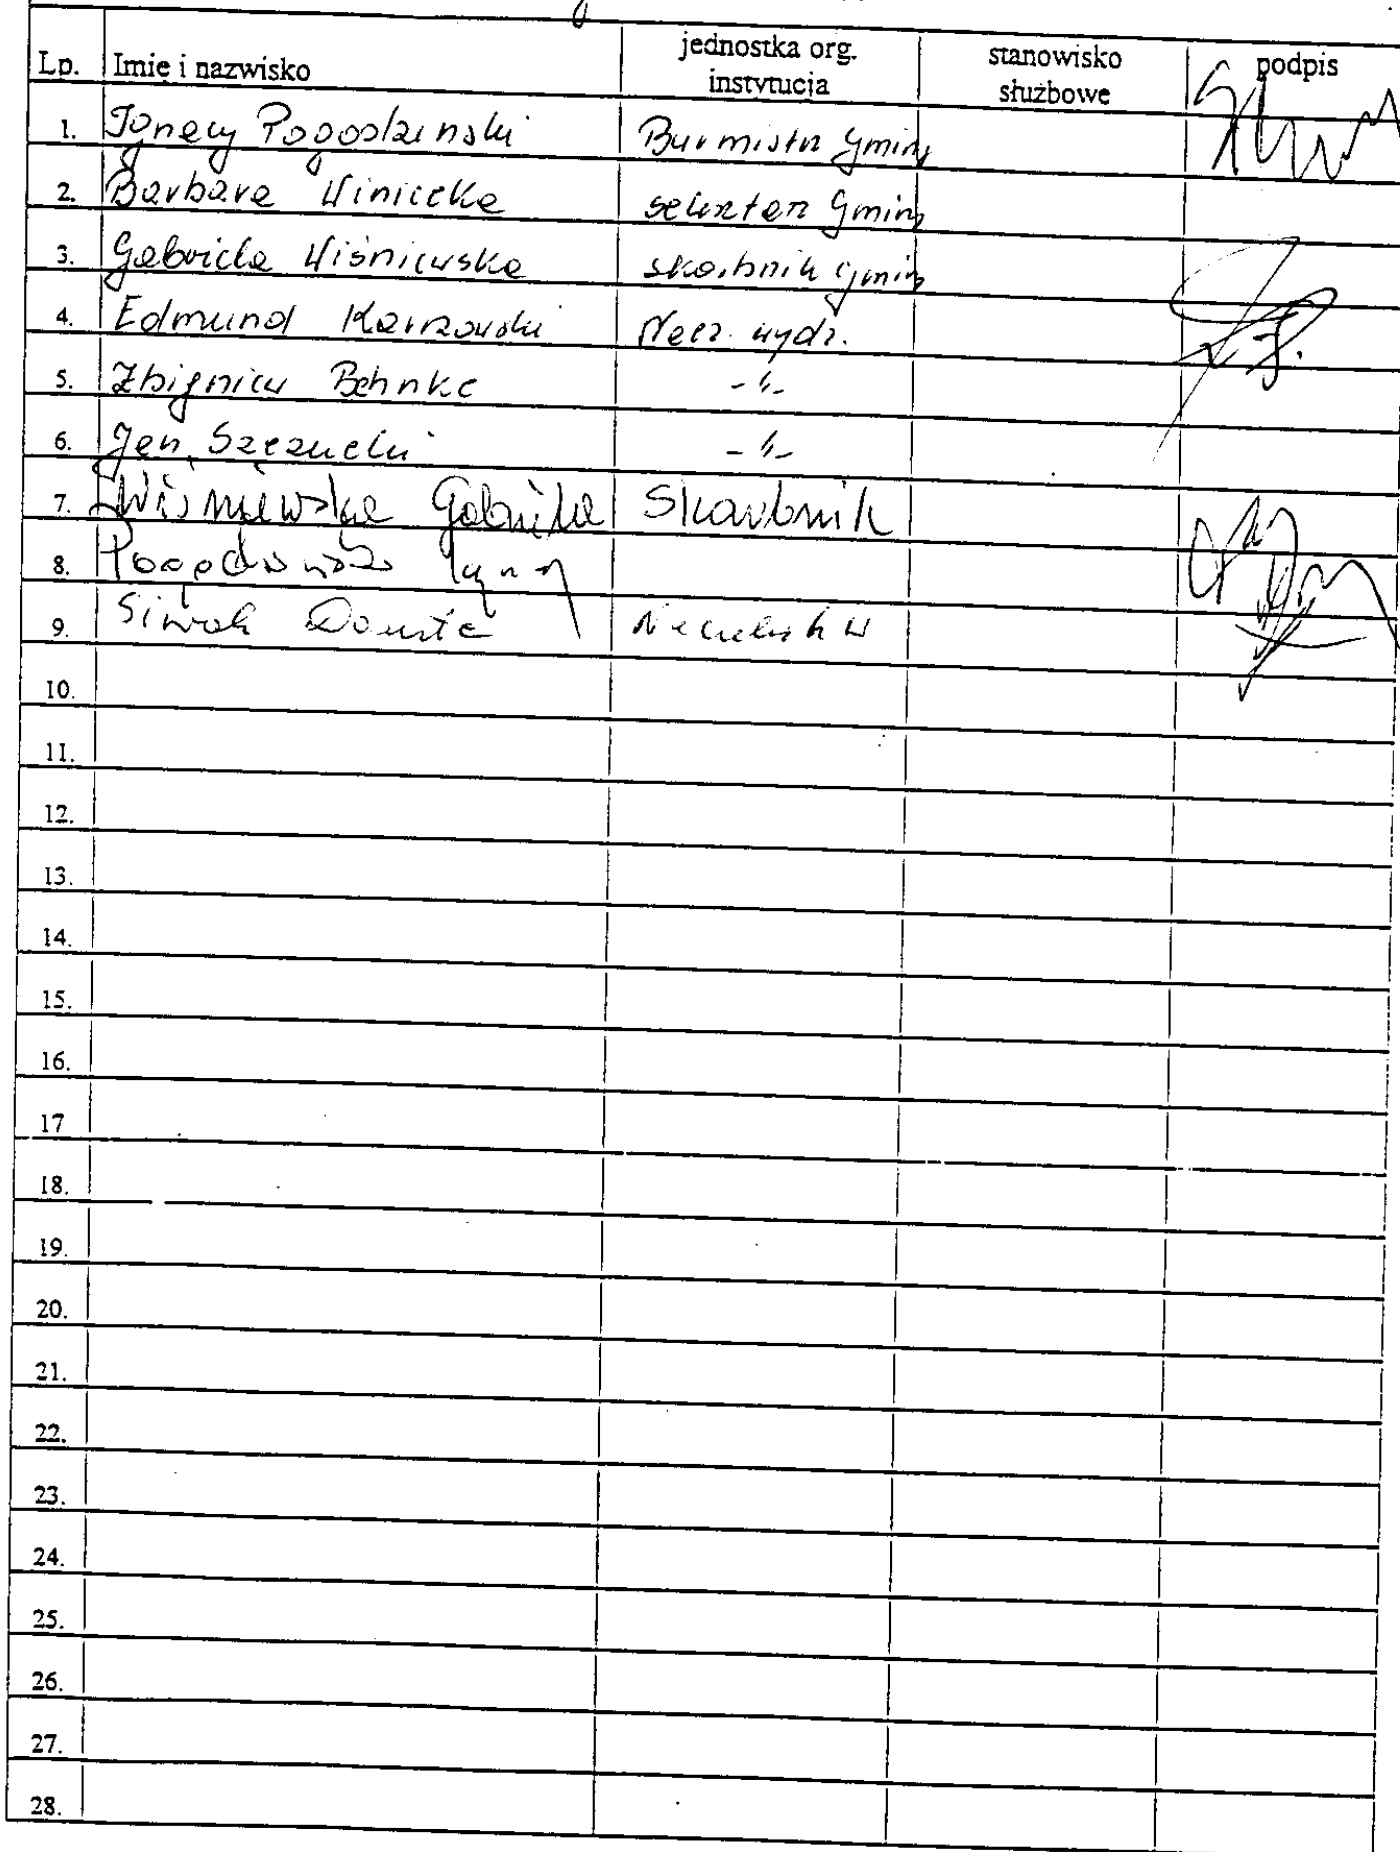 Lp. Imię i nazwisko jednostka org. instytucja stanowisko służbowe podpis
1. Ignacy Pogodziński Burmistrz Gminy
2. Barbara Winiecka sekretarz Gminy
3. Gabriela Wiśniewska skarbnik Gminy
4. Edmund Karnowski Nacz. wydz.
5. Zbigniew Behnke -"-
6. Jan Szczucki -"-
7. Wiśniewska Gabriela Skarbnik
8.
9. Siwak Danuta
10.
11.
12.
13.
14.
15.
16.
17
18.
19.
20.
21.
22.
23.
24.
25.
26.
27.
28.